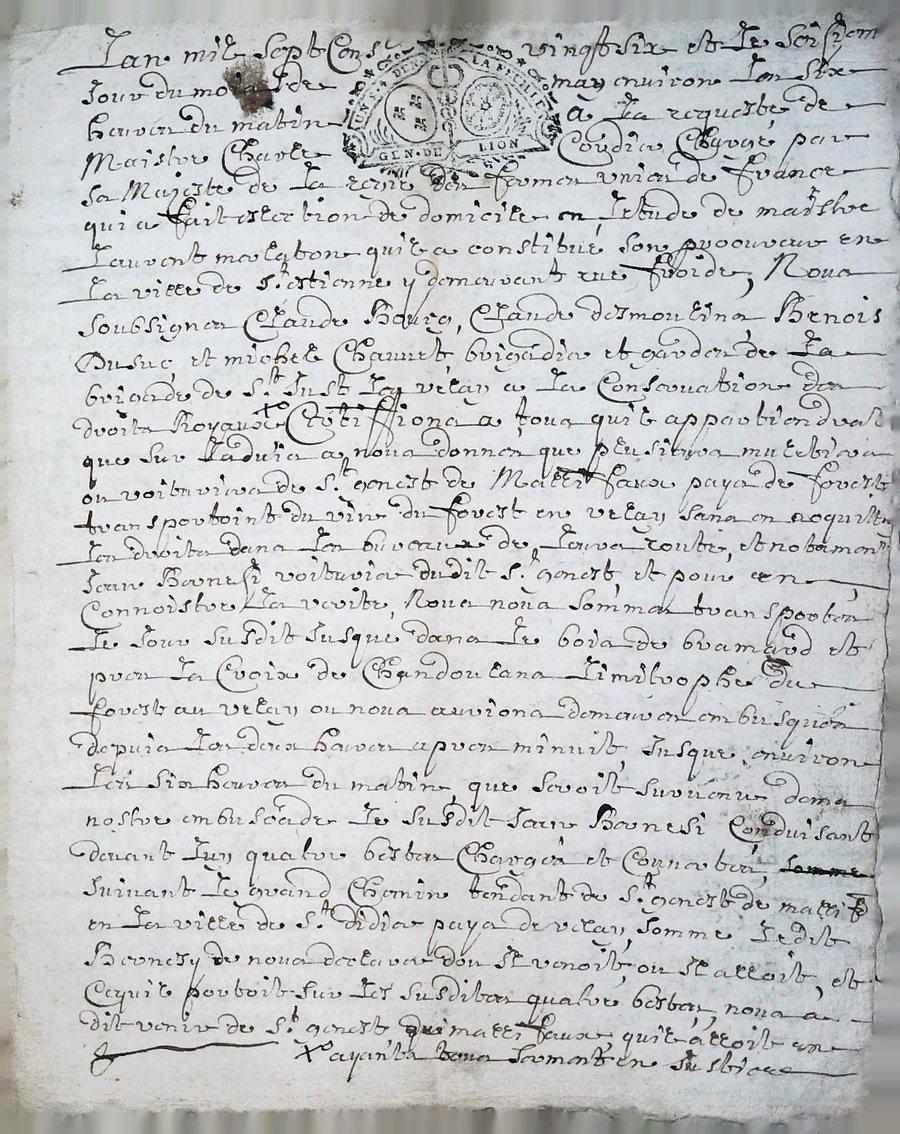 Lan mil sept Cens vingt six et le seisiem
Jour du mois de may environ les six
heures du matin A la requeste de
Maistre Charle Cordier Chargé par
sa Majesté de la regie des fermes unies de france
qui a fait eslection de domicile en letude de maistre
Laurent malaton quil a constitué son procureur en
la ville de St. estienne y demeurant rue froide, Nous
soubsignes Claude Bourg, Claude desmoulins Benois
Dusuc, et michel Chauvet brigadier et gardes de la
brigade de St. Just les velay a la Conservation des
droits Royaux x Certiffions a tous quil appartiendrat
que sur ladvis a nous donner que plusieurs muletiers
ou voituriers de St. genest de Mallifaux pays de forest
transportoint du vin du forest en velay sans en acquitter
les droits dans les bureaux de leurs route, et notament
Jean Bornesi voiturier dudit St. genest, et pour en
Connoistre la verite, Nous nous sommes transportes
le Jour susdit Jusque dans le bois de bramard et
pres la Croix de Chandoulans limitrophe du
forest au velay ou nous aurions demeures embusqués
depuis les deux heures apres minuit, Jusque environ
les six heures du matin, que seroit survenu dans
nostre embuscade le susdit Jean Bornesi Conduisant
devant luy quatre bestes Charges et Couvertes, somme
suivant le grand Chemin tendant de St. genest de mallif
en la ville de St. didier pays de velay, somme ledit
Bornesy de nous declarer dou Il venoit, ou Il alloit, et
Cequil portoit sur les susdites quatre bestes, nous a
dit venir de St. genest mallifaux, quil alloit en
x ayants tous serment en Justice